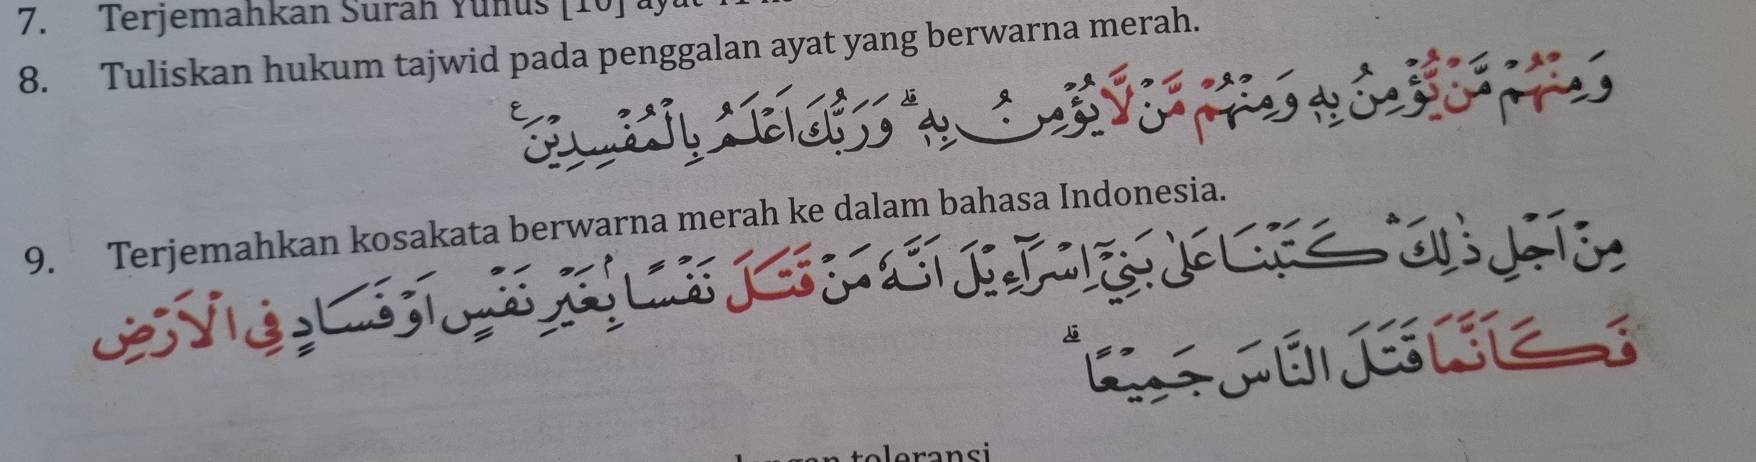 7. Terjemahkan Surah Yunus [10] ayat
8. Tuliskan hukum tajwid pada penggalan ayat yang berwarna merah.
وَمِنْهُمْ مَّنْ يُّؤْمِنُ بِهٖ وَمِنْهُمْ مَّنْ لَّا يُؤْمِنُ بِهٖۗ وَرَبُّكَ اَعْلَمُ بِالْمُفْسِدِيْنَ ࣖ
9. Terjemahkan kosakata berwarna merah ke dalam bahasa Indonesia.
مِنْ اَجْلِ ذٰلِكَ ۛ كَتَبْنَا عَلٰى بَنِيْٓ اِسْرَاۤءِيْلَ اَنَّهٗ مَنْ قَتَلَ نَفْسًاۢ بِغَيْرِ نَفْسٍ اَوْ فَسَادٍ فِى الْاَرْضِ
فَكَاَنَّمَا قَتَلَ النَّاسَ جَمِيْعًاۗ
toleransi